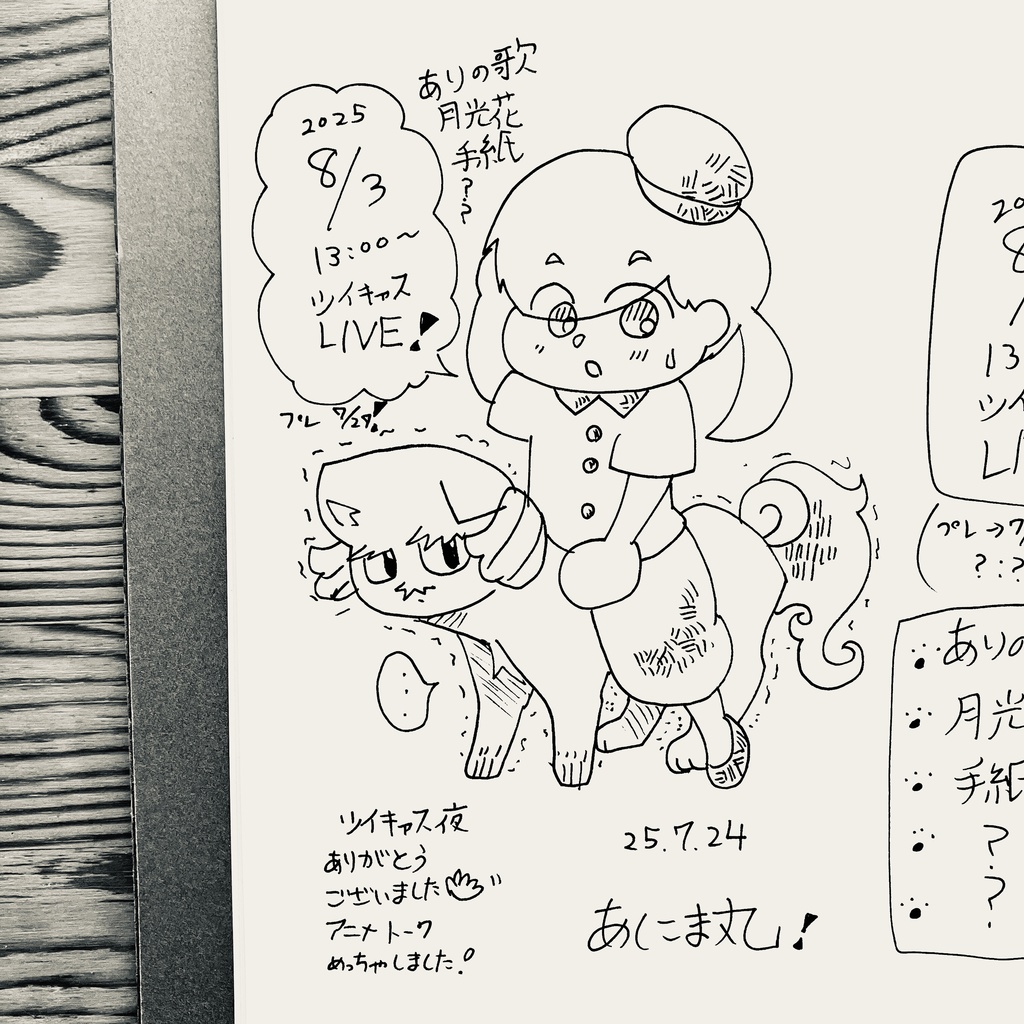 2025
8/3
13:00〜
ツイキャス
LIVE!
プレ 7/27!〜
ありの歌
月光花
手紙
?
?
ツイキャス夜
ありがとう
ございました
アニメトーク
めっちゃしました!
25.7.24
あしこま丸!
20
8
/
13
ツイ
LI
プレ→7/
?:?
ありの
月光
手紙
?
?